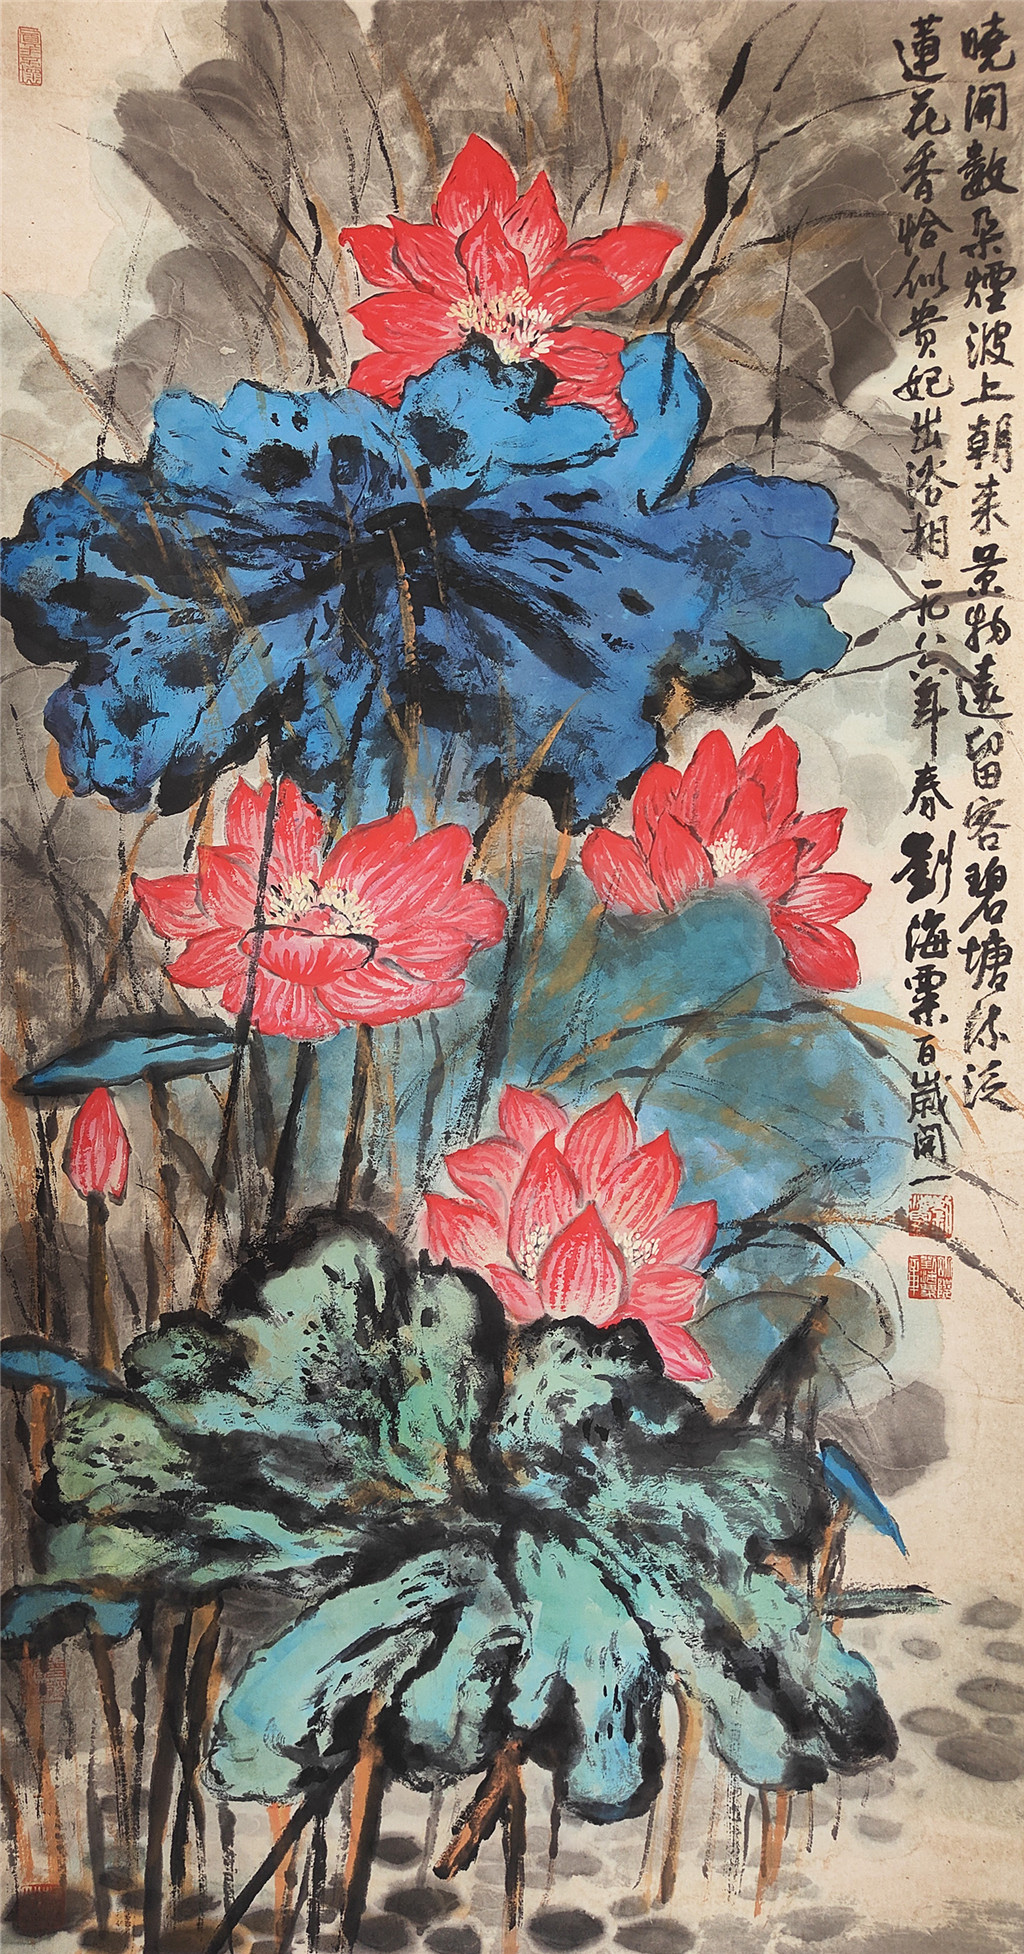 曉開數朵煙波上朝来景物遠留客碧塘深泛
蓮花香恰似贵妃出浴相一九八六年春劉海粟百歲開一